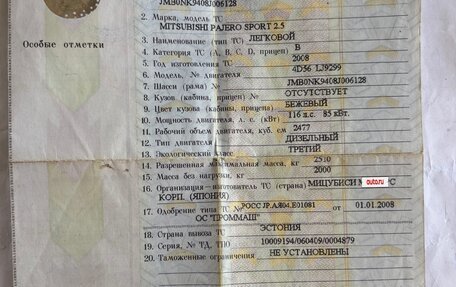 JMB0NK9408J006128
Особые отметки
2. Марка, модель ТС
MITSUBISHI PAJERO SPORT 2.5
3. Наименование (тип ТС) ЛЕГКОВОЙ
4. Категория ТС (А, В, С, D, прицеп) B
5. Год изготовления ТС 2008
6. Модель, № двигателя 4D56 LJ9299
7. Шасси (рама) № JMB0NK9408J006128
8. Кузов (кабина, прицеп) № ОТСУТСТВУЕТ
9. Цвет кузова (кабины, прицепа) БЕЖЕВЫЙ
10. Мощность двигателя, л. с. (кВт) 116 л.с. 85 кВт.
11. Рабочий объем двигателя, куб. см 2477
12. Тип двигателя ДИЗЕЛЬНЫЙ
13. Экологический класс ТРЕТИЙ
14. Разрешенная максимальная масса, кг 2510
15. Масса без нагрузки, кг 2000
16. Организация—изготовитель ТС (страна) МИЦУБИСИ auto.ru
КОРП. (ЯПОНИЯ)
17. Одобрение типа ТС № РОСС JP.АЯ04.Е01081 от 01.01.2008
ОС "ПРОММАШ"
18. Страна вывоза ТС ЭСТОНИЯ
19. Серия, № ТД, ТПО 10009194/060409/0004879
20. Таможенные ограничения НЕ УСТАНОВЛЕНЫ